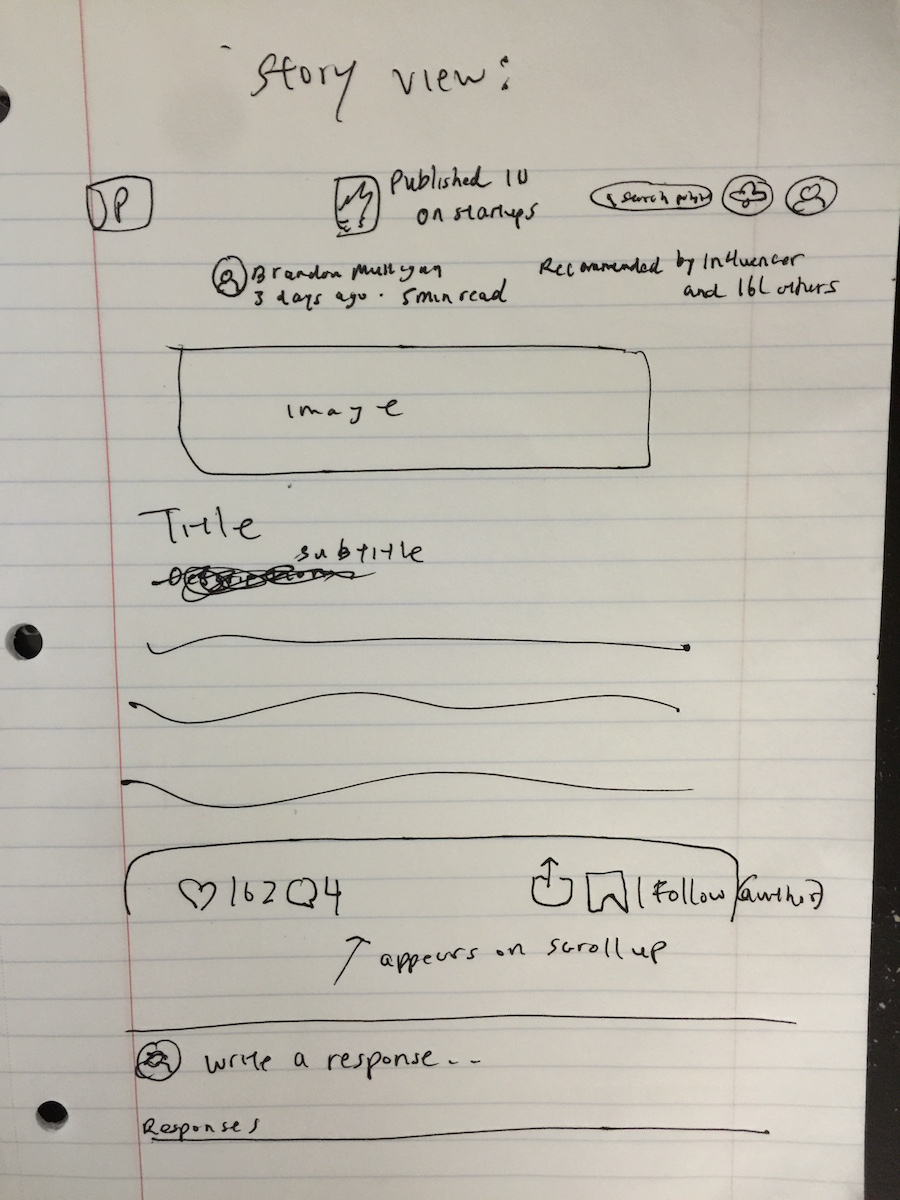 Story view:
P
Published in
on startups
search
Brandon
3 days ago · 5 min read
Recommended by Influencer
and 162 others
image
Title
subtitle
162 4
| Follow (author)
appears on scroll up
write a response...
Responses